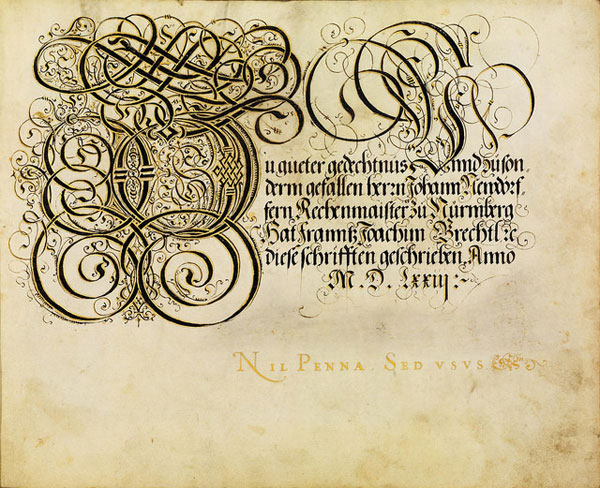 Zu gueter gedechtnus Vnnd zu son
derm gefallen herrn Johann Neudorf
fern Rechenmaister zu Nürmberg
Hat Franntz Joachim Brechtl ⁊c
diese schrifften geschrieben, Anno
M. D. lxxiij :~
NIL PENNA SED VSVS